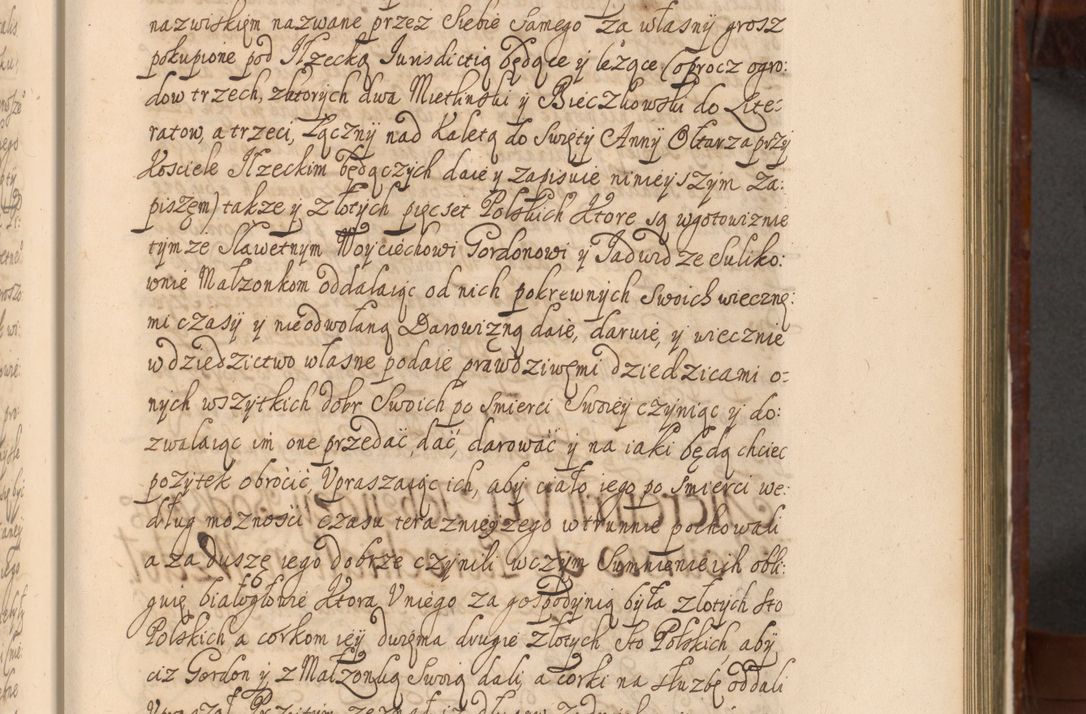 nazwiskięm nazwane przez Siebie Samego za własny grosz
pokupione pod Ilzecką Iurisdictią będące y leżące (oprocz ogro:
dow trzech, zktorych dwa Mietlinski y Bieczkowski do Lite=
ratow, a trzeci, Łączny nad Kaletą do Swięty Anny Ołtarza przy
Kościele Ilzeckim będączych daie y zapisuie ninieyszym Za:
piszęm) także y złotych pięćset Polskich Które są wgotowiznie
tymze Sławetnym Woyciechowi Gordonowi y Jadwidze Suliko:
wnie Małzonkom oddalaiąc od nich pokrewnych Swoich wieczne:
mi czasy y nieodwołaną Darowizną daie, daruie, y wiecznie
wdziedzictwo własne podaie prawdziwęmi dziedzicami o=
nych wszytkich dobr Swoich po Smierci Swoiey czyniąc y do:
zwalaiąc im one przedać, dać, darować y na iaki będą chciec
pożytek obrócić Vpraszaiąc ich, aby ciało iego po Smierci we:
dług możności czasu teraznieyzego wtrunnie pochowali
a za duszę iego dobrze czynili wczym Sumnienie ich obli:
guię białogłowie Ktora Vniego za gospodynią była złotych sto
Polskich a corkom iey dwięma drugie złotych Sto Polskich aby
ciz Gordon y z Małzonką Swoią dali, a corki na służbę oddali